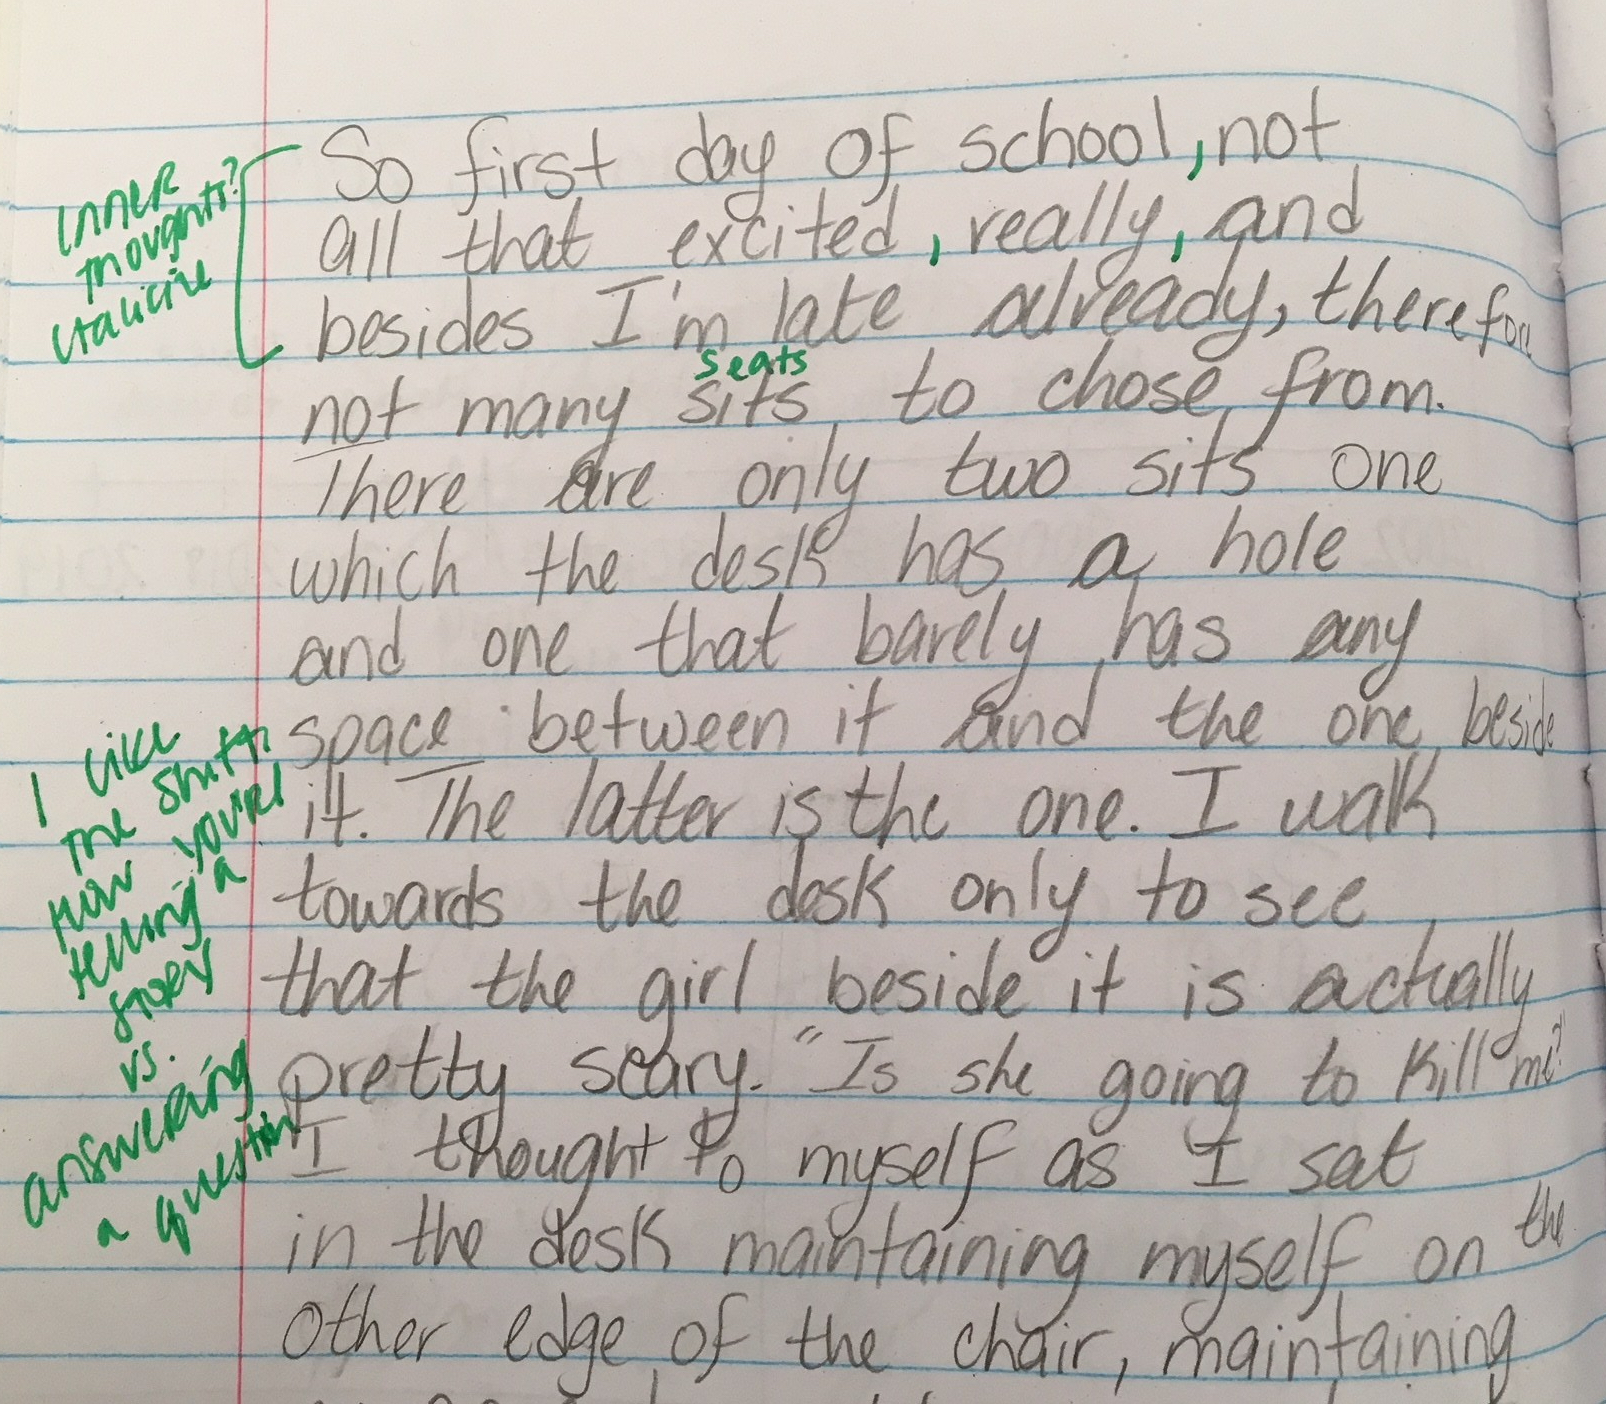 So first day of school, not
all that excited, really, and
besides I'm late already, therefore
seats
not many sits to chose from.
There are only two sits one
which the desk has a hole
and one that barely has any
space between it and the one beside
it. The latter is the one. I walk
towards the desk only to see
that the girl beside it is actually
pretty scary. "Is she going to kill me?"
I thought to myself as I sat
in the desk maintaining myself on the
other edge of the chair, maintaining
Inner
thoughts?
italicize
I like
the shift in
how you're
telling a
story
vs.
answering
a question